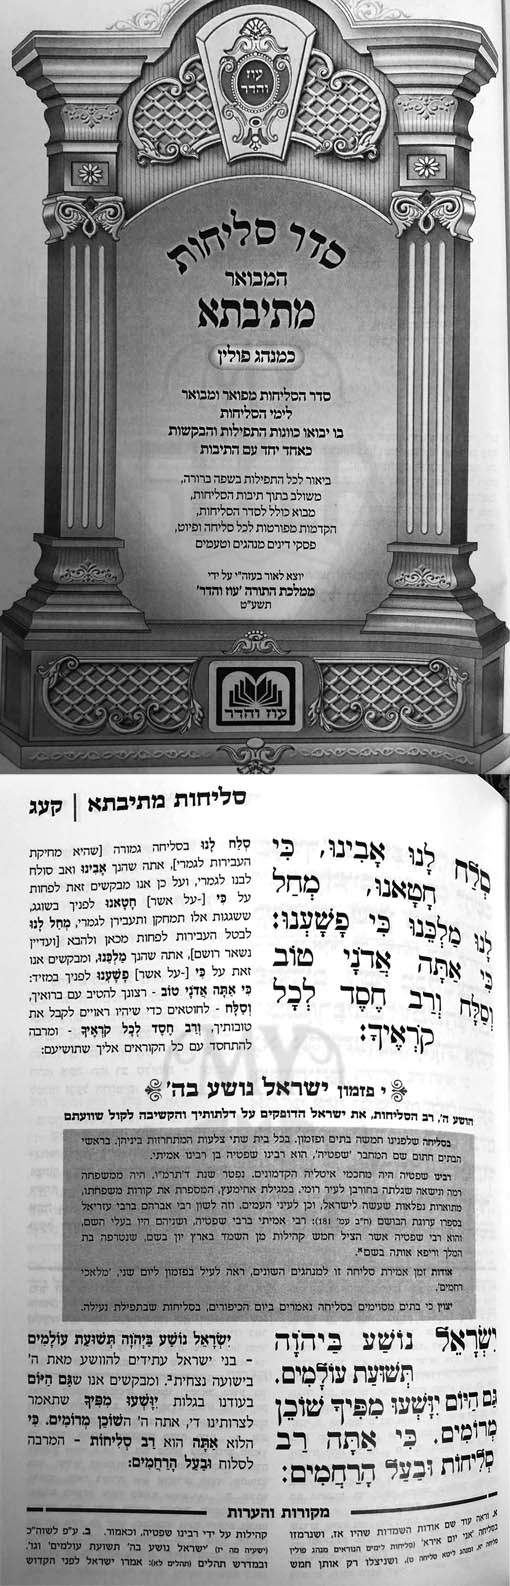 עוז
והדר
סדר סליחות
המבואר
מתיבתא
כמנהג פולין
סדר הסליחות מפואר ומבואר
לימי הסליחות
בו יבואו כוונות התפילות והבקשות
כאחד יחד עם התיבות
ביאור לכל התפילות בשפה ברורה,
משולב בתוך תיבות הסליחות,
מבוא כולל לסדר הסליחות,
הקדמות מפורטות לכל סליחה ופיוט,
פסקי דינים מנהגים וטעמים
יוצא לאור בעזה"י על ידי
ממלכת התורה 'עוז והדר'
תשע"ט
עוז והדר
סליחות מתיבתא | קעג
סְלַח לָנוּ אָבִינוּ, כִּי
חָטָאנוּ, מְחַל
לָנוּ מַלְכֵּנוּ כִּי פָשָׁעְנוּ:
כִּי אַתָּה אֲדֹנָי טוֹב
וְסַלָּח וְרַב חֶסֶד לְכָל
קֹרְאֶיךָ:
סְלַח לָנוּ בסליחה גמורה [שהיא מחיקת
העבירות לגמרי], אתה שהנך אָבִינוּ ואב סולח
לבנו לגמרי, ועל כן אנו מבקשים זאת לפחות
על כִּי [-על אשר] חָטָאנוּ לפניך בשוגג,
ששגגות אלו תמחקן ותעבירן לגמרי, מְחַל לָנוּ
לבטל העבירות לפחות מכאן ולהבא [ועדיין
נשאר רושם], אתה שהנך מַלְכֵּנוּ, ומבקשים אנו
זאת על כִּי [-על אשר] פָשָׁעְנוּ לפניך במזיד:
כִּי אַתָּה אֲדֹנָי טוֹב - רצונך להטיב עם ברואיך,
וְסַלָּח - לחוטאים כדי שיהיו ראויים לקבל את
טובותיך, וְרַב חֶסֶד לְכָל קֹרְאֶיךָ - ומרבה
להתחסד עם כל הקוראים אליך שתושיעם:
י פזמון ישראל נושע בה'
הושע ה', רב הסליחות, את ישראל הדופקים על דלתותיך והקשיבה לקול שוועתם
בסליחה שלפנינו חמשה בתים ופזמון. בכל בית שתי צלעות המתחרזות ביניהן. בראשי
הבתים חתום שם המחבר 'שפטיה', הוא רבינו שפטיה בן רבינו אמיתי.
רבינו שפטיה היה מחכמי איטליה הקדמונים. נפטר שנת ד'תרמ"ו, היה ממשפחה
רמה ונישאה שגלתה בחורבן לעיר רומי. במגילת אחימעץ, המספרת את קורות משפחתו,
מתוארות נפלאות שעשה לישראל, וכן לעיני העמים. וזה לשון רבי אברהם ברבי עזריאל
בספרו ערוגת הבושם (ח"ב עמ' 181): רבי אמיתי ברבי שפטיה, ושניהם היו בעלי השם,
והוא רבי שפטיה אשר הציל חמש קהילות מן השמד בארץ יון בשם, שנטרפה בת
המלך וריפא אותה בשםא.
אודות זמן אמירת סליחה זו למנהגים השונים, ראה לעיל בפזמון ליום שני, 'מלאכי
רחמים'.
יצוין כי בתים מסוימים בסליחה נאמרים ביום הכיפורים, בסליחות שבתפילת נעילה.
יִשְׂרָאֵל נוֹשַׁע בַּיהֹוָה
תְּשׁוּעַת עוֹלָמִים.
גַּם הַיּוֹם יִוָּשְׁעוּ מִפִּיךָ שׁוֹכֵן
מְרוֹמִים. כִּי אַתָּה רַב
סְלִיחוֹת וּבַעַל הָרַחֲמִים:
יִשְׂרָאֵל נוֹשַׁע בַּיהֹוָה תְּשׁוּעַת עוֹלָמִים
- בני ישראל עתידים להוושע מאת ה'
בישועה נצחיתב. ומבקשים אנו שגַּם הַיּוֹם
בעודנו בגלות יִוָּשְׁעוּ מִפִּיךָ שתאמר
לצרותינו די, אתה ה' השׁוֹכֵן מְרוֹמִים. כִּי
הלוא אַתָּה הוא רַב סְלִיחוֹת - המרבה
לסלוח וּבַעַל הָרַחֲמִים:
מקורות והערות
א. וראה עוד שם אודות השמדות שהיו אז, ושנרמזו
בסליחה 'אני יום אירא' (סליחות לימים הנוראים מנהג פולין
סליחה יא, ומנהג ליטא סליחה ט), ושניצלו רק אותן חמש
קהילות על ידי רבינו שפטיה, וכאמור. ב. ע"פ לשוה"כ
(ישעיה מה יז) 'ישראל נושע בה' תשועת עולמים' וגו'.
ובמדרש תהלים (תהלים לא): אמרו ישראל לפני הקדוש